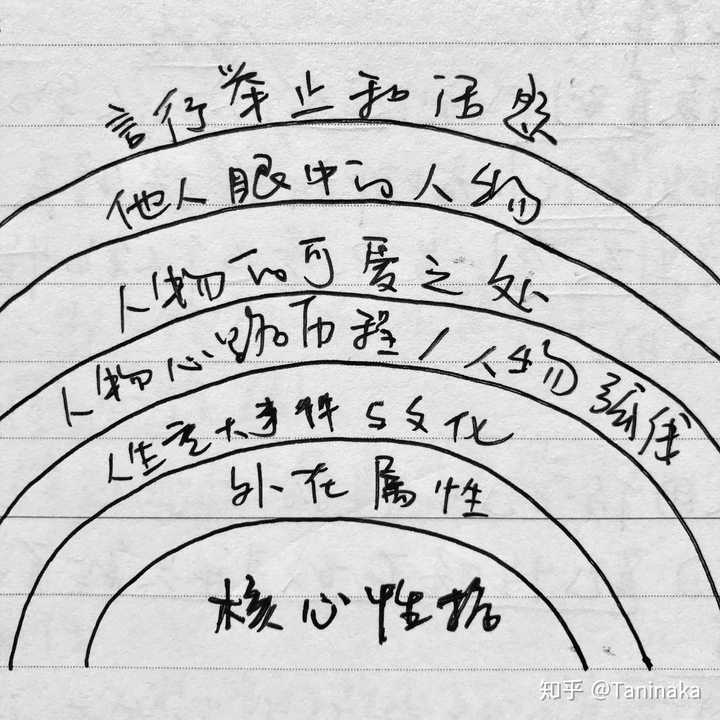 言行举止和活息
他人眼中的人物
人物的可爱之处
人物心路历程/人物弧线
人生重大事件与文化
外在属性
核心性格
知乎 @Taninaka